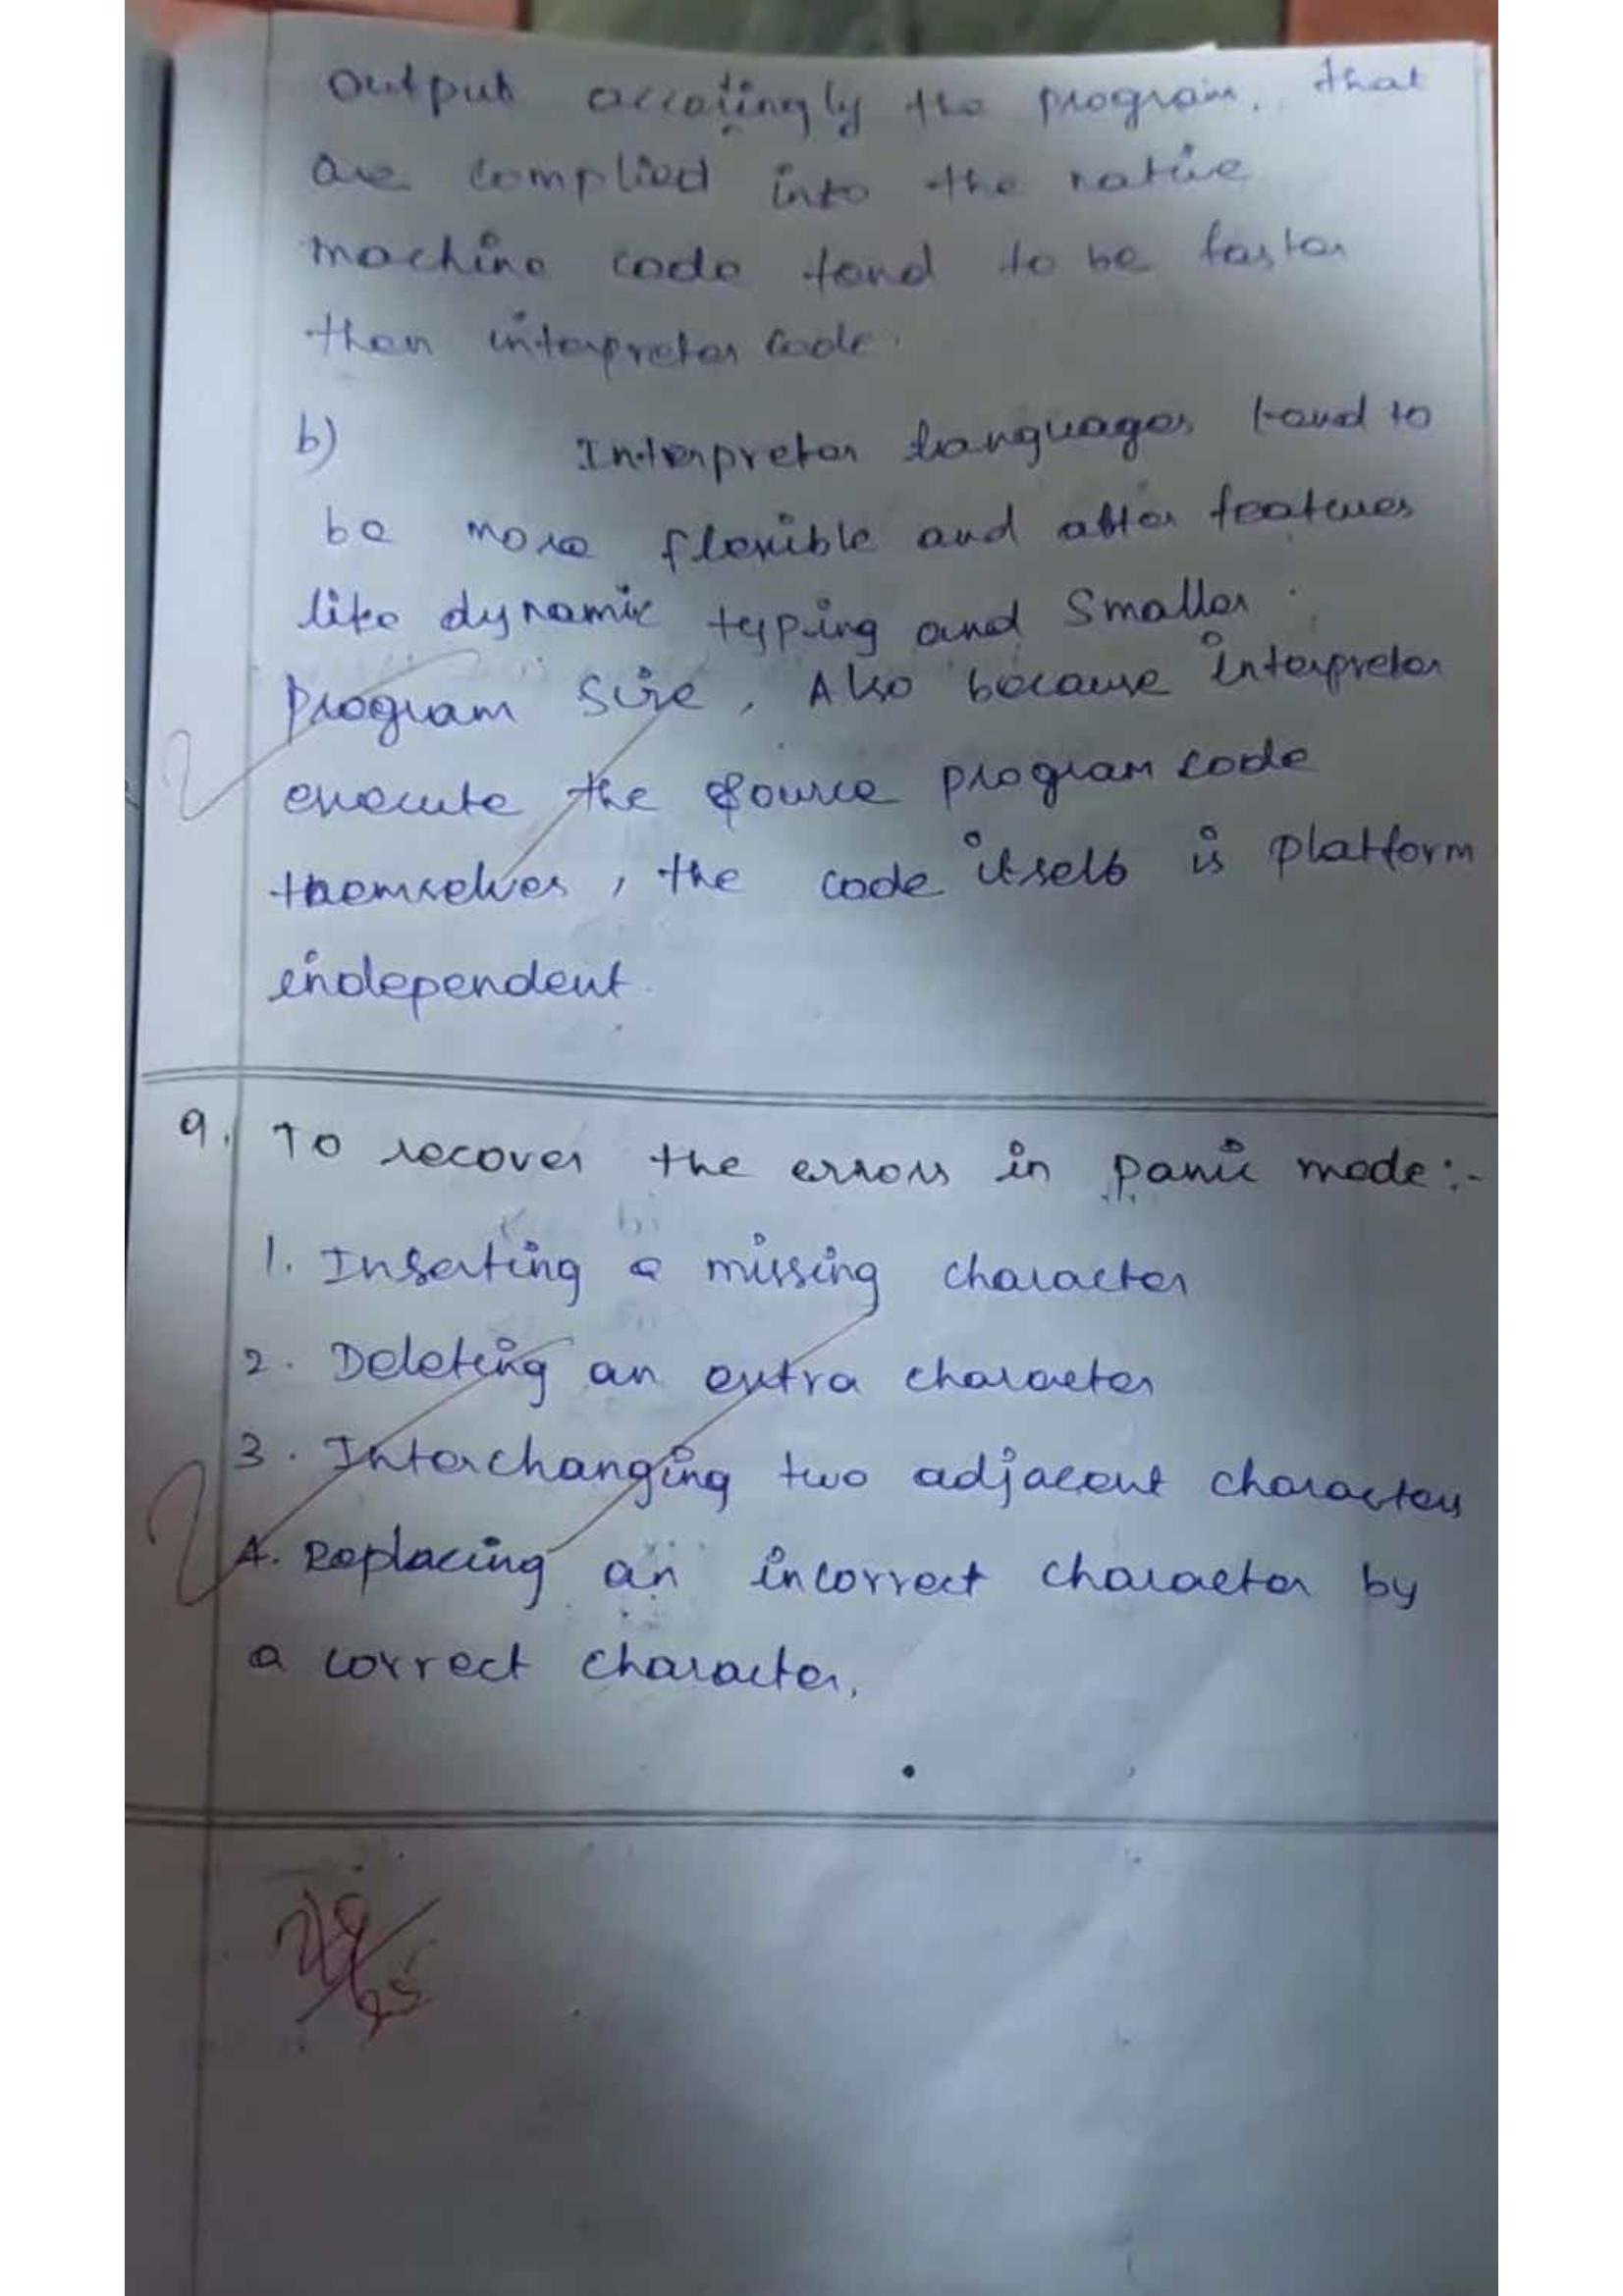 output accotingly the program. that
are complied into the native
machine code tend to be faster
then interpreter code.
b) Interpreter languages tend to
be more flexible and after features
like dynamic typing and smaller
program size, Also because interpreter
execute the source program code
themselves, the code itself is platform
independent.
9. To recover the errors in panic mode:-
1. Inserting a missing character
2. Deleting an extra character
3. Interchanging two adjacent characters
4. Replacing an incorrect character by
a correct character.
2
2
25